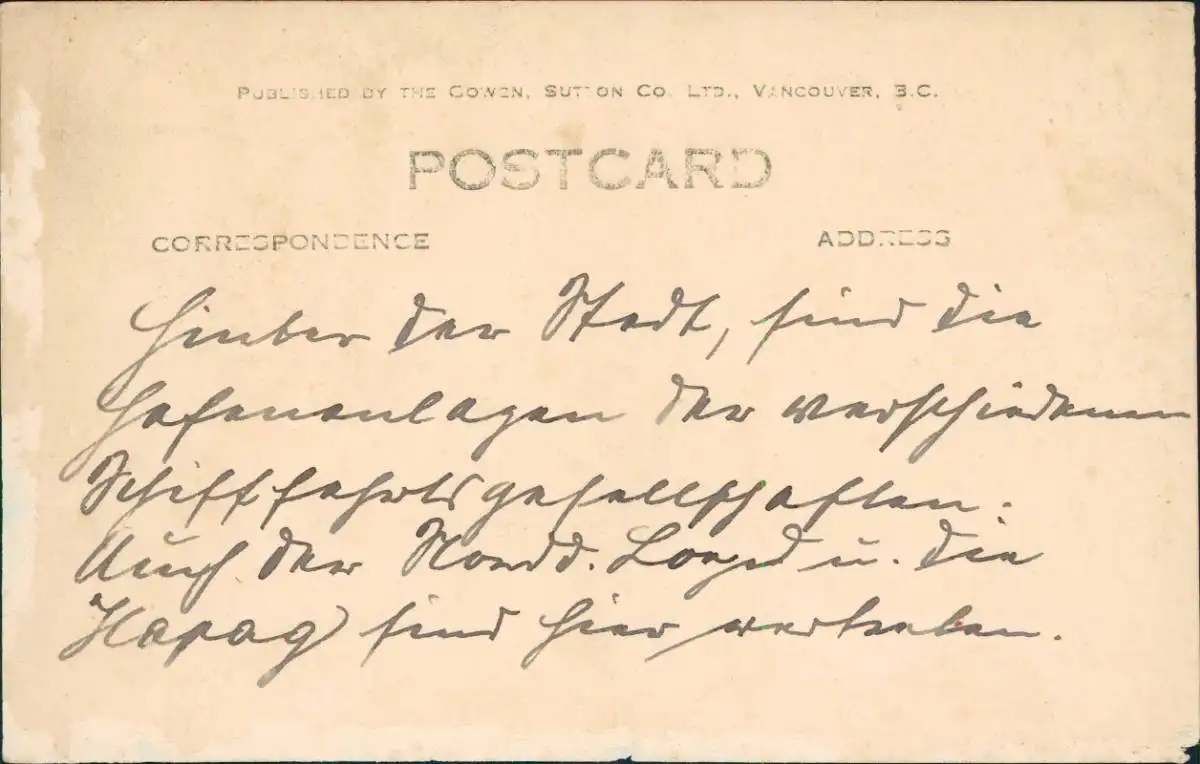 PUBLISHED BY THE COWEN, SUTTON CO. LTD., VANCOUVER, B.C.
POSTCARD
CORRESPONDENCE ADDRESS
der Stadt, sind die
Hafenanlagen der verschiedenen
Schifffahrtsgesellschaften.
Auch der Nordd. Loyd u. die
Hapag sind hier vertreten.